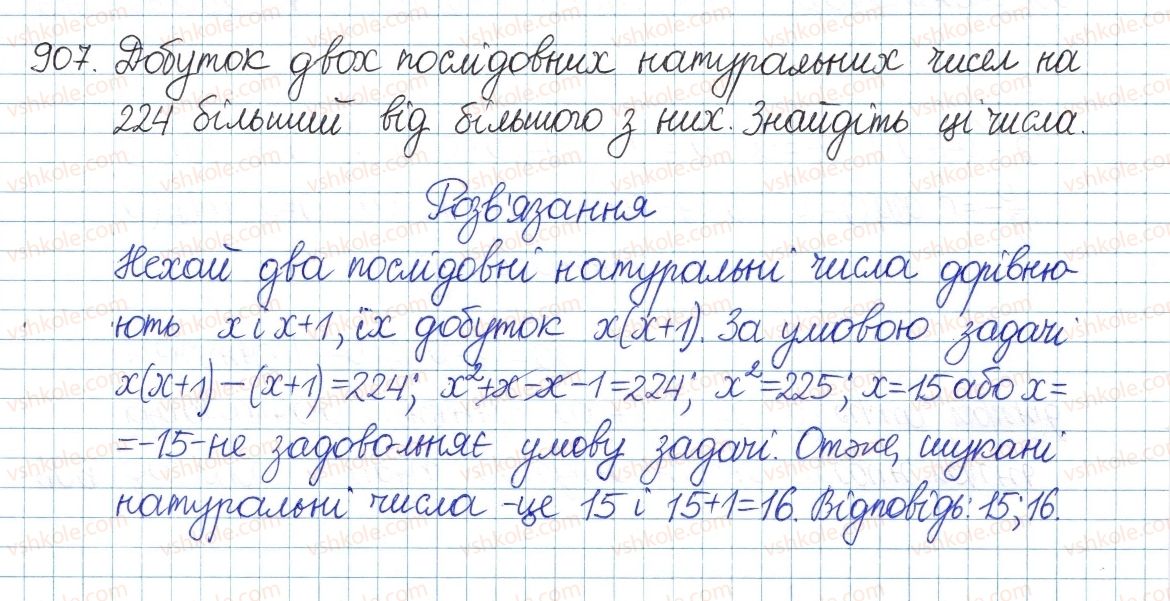 907. Добуток двох послідовних натуральних чисел на
224 більший від більшого з них. Знайдіть ці числа.
Розв'язання
Нехай два послідовні натуральні числа дорівню-
ють х і х+1, їх добуток х(х+1). За умовою задачі
х(х+1)-(х+1)=224; х²+х-х-1=224; х²=225; х=15 або х=
=-15-не задовольняє умову задачі. Отже, шукані
натуральні числа -це 15 і 15+1=16. Відповідь: 15; 16.